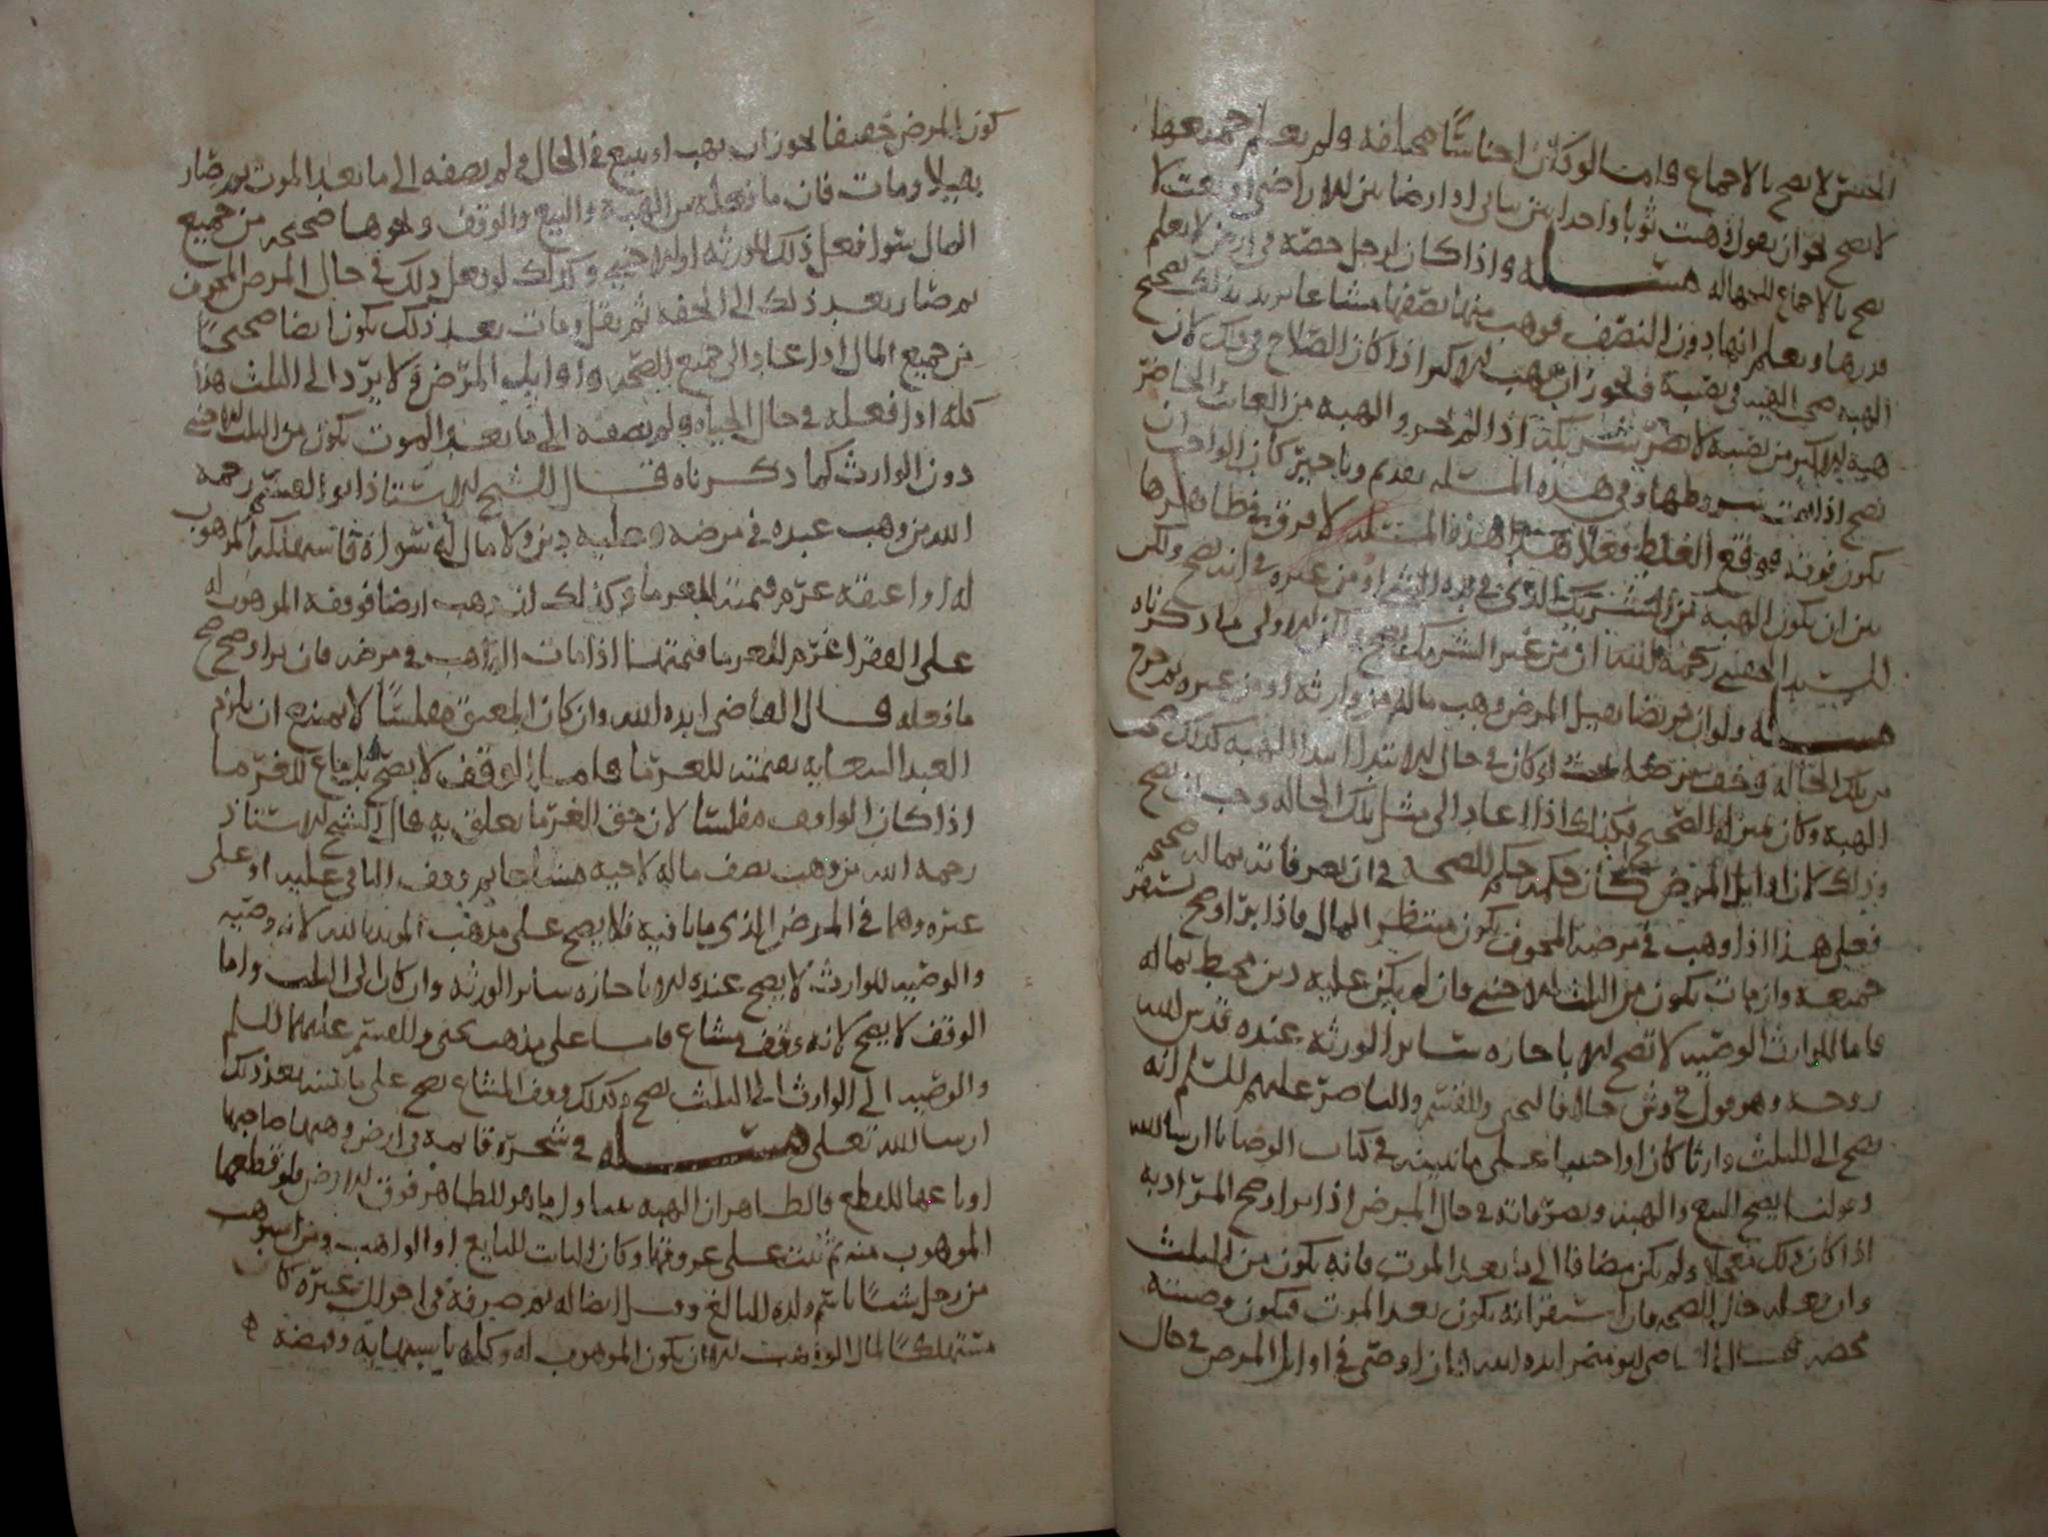 الجنس لا يصح بالاجماع فاما لو كان اجناسا مختلفة ولم يعلم جميعها
لا يصح نحو ان يقول وهبت ثوبا واحدا من ثيابي او ارضا من الاراضي او بيت لا
يصح بالاجماع للجهالة مسئله واذا كان لرجل حصة في ارض لا يعلم
قدرها ويعلم انها دون النصف فوهب منها نصفها مشاعا يريد بذلك تصحيح
الهبة صحت الهبة في نصيبه فيجوز ان يهب الاكثر اذا كان الصلاح في ذلك لان
هبة الاكثر من نصيبه لا تضر بشريكه اذا لم يجز والهبة من الغائب الحاضر
تصح اذا تمت بشروطها وفي هذه المسئلة تقدم وتاخير كان الواجب ان
يكون فوقه فوقع الغلط فعلا هذا هذه المسئلة لا فرق في ظاهرها
بين ان يكون الهبة من الشريك الذي في يده الشي او من غيره في انه يصح ولكن
السيد الحقيني رحمه الله ان من غير الشريك يصح الاولى ما ذكرناه
مسئله ولو ان مريضا ثقيل المرض وهب ماله من وارثه او من غيره ثم خرج
من تلك الحالة وخف مرضه او كان في حال الابتداء ابتدا الهبة كذلك صحت
الهبة وكان بمنزلة الصحيح وكذلك اذا عاد الى مثل تلك الحالة وجب ان يصح
وذلك لان اوايل المرض كان حكمه حكم الصحة في ان تصرفاته بماله صحيحة
فعلى هذا اذا وهب في مرضه المخوف يكون منتظر المال فاذا برا وصح استقر
جميعه وان مات يكون من الثلث للاجنبي فان لم يكن عليه دين محيط بماله
فاما للوارث الوصية لا تصح الا باجازة سائر الورثة عنده قدس الله
روحه وهو قول خلافا ليحيى والقسم والناصر عليهم السلم انه
يصح الى الثلث وارثا كان او اجنبيا على ما نبينه في كتاب الوصايا ان شا الله
وقولنا يصح البيع والهبة وتصرفاته في حال المرض اذا برا وصح المراد به
اذا كان ذلك معجلا ولم يكن مضافا الى ما بعد الموت فانه يكون من الثلث
وان فعله حال الصحة فان استقر انه يكون بعد الموت فيكون وصيته
محضة قال القاضي ابو مضر ايده الله فان اوصى في اوايل المرض في حال
كون المرض خفيفا نحو ان يهب او يبيع في الحال ولم يضفه الى ما بعد الموت ثم صار
ثقيلا ومات فان ما فعله من الهبة والبيع والوقف ونحوها صحيحة من جميع
المال سوا فعل ذلك للورثة او للاجنبي وكذلك لو فعل ذلك في حال المرض المخوف
ثم صار بعد ذلك الى الخفة ثم ثقل ومات بعد ذلك يكون ايضا صحيحا
من جميع المال اذا عاد الى جميع الصحة واوايل المرض ولا يرد الى الثلث هذا
كله اذا فعله في حال الحياة ولم يضفه الى ما بعد الموت يكون من الثلث للاجنبي
دون الوارث كما ذكرناه قال الشيخ الاستاذ ابو القسم رحمه
الله من وهب عبده في مرضه وعليه دين ولا مال له سواه فاستهلكه الموهوب
له او اعتقه غرم قيمته للغرما وكذلك ان وهب ارضا فوقفه الموهوب له
على الفقرا غرم للغرما قيمتها اذا مات الواهب في مرضه فان برا وصح صح
ما فعله قال القاضي ايده الله وان كان المعتق مفلسا لا يمتنع ان يلزم
العبد السعاية بقيمته للغرما فاما الوقف لا يصح بل يباع للغرما
اذا كان الواقف مفلسا لان حق الغرما تعلق به قال الشيخ الاستاذ
رحمه الله من وهب نصف ماله لاخيه مشاعا ثم وقف الباقي عليه او على
غيره وهما في المرض الذي مات فيه فلا يصح على مذهب المويد بالله لانه وصية
والوصية للوارث لا يصح عنده الا باجازة سائر الورثة وان كان الى الثلث واما
الوقف لا يصح لانه وقف مشاع فاما على مذهب يحيى والقسم عليهما السلم
والوصية الى الوارث الى الثلث يصح وكذلك وقف المشاع يصح على ما نبينه بعد ذلك
ان شا الله تعالى مسئله في شجرة قائمة في ارض وهبها صاحبها
او باعها للقطع فالظاهر ان الهبة تتناول ما هو الظاهر فوق الارض فلو قطعها
الموهوب منه ثم نبت على عروقها وكان النبات للبايع او الواهب ومن استوهب
من رجل شيئا باسم ولده البالغ وقبل ايضا له ثم صرفه في احوال غيره كان
مستهلكا لمال الواهب الا ان يكون الموهوب له وكله باستيهابه وقبضه